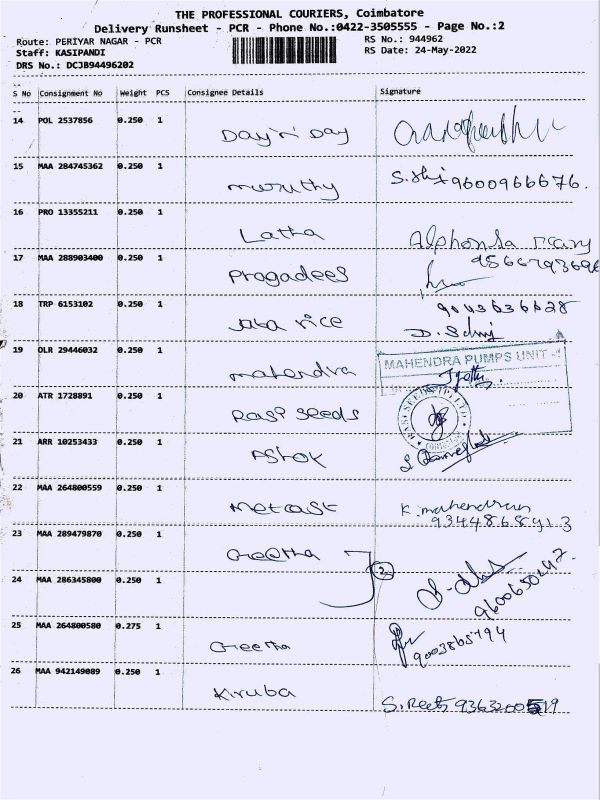 THE PROFESSIONAL COURIERS, Coimbatore
Delivery Runsheet - PCR - Phone No.:0422-3505555 - Page No.:2
Route: PERIYAR NAGAR - PCR RS No.: 944962
Staff: KASIPANDI RS Date: 24-May-2022
DRS No.: DCJB94496202
S No Consignment No Weight PCS Consignee Details Signature
14 POL 2537856 0.250 1 Day'n Day
15 MAA 284745362 0.250 1 muruthy 9600966676.
16 PRO 13355211 0.250 1 Latha Alphonsa mary
17 MAA 288903400 0.250 1 Pragadees
18 TRP 6153102 0.250 1 rice
19 OLR 29446032 0.250 1 mahendra
MAHENDRA PUMPS UNIT
20 ATR 1728891 0.250 1 Rasi seeds
21 ARR 10253433 0.250 1 Ashok
22 MAA 264800559 0.250 1 Metcast K. mahendran
9344868913
23 MAA 289479870 0.250 1 Geetha
24 MAA 286345800 0.250 1 2
25 MAA 264800580 0.275 1 Geetha 9003865794
26 MAA 942149089 0.250 1 Kiruba